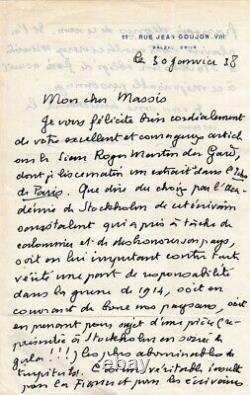 RUE JEAN GOUJON. VIII
le 30 janvier 38
Mon cher Massis
Je vous félicite bien cordialement
de votre excellent et courageux article
sur le sieur Roger Martin du Gard,
dont je lis ce matin un extrait dans l'Echo
de Paris. Que dire du choix par l'Aca-
démie de Stockholm de cet écrivain
qui a pris à tâche de
calomnier et de déshonorer son pays,
soit en lui imputant contre toute
vérité une part de responsabilité
dans la guerre de 1914, soit en
couvrant de boue nos paysans, soit
en prenant pour sujet d'une pièce (re-
présentée à Stockholm en soirée de
gala!!!) les plus abominables
turpitudes. C'est une véritable insulte
pour la France et pour les écrivains